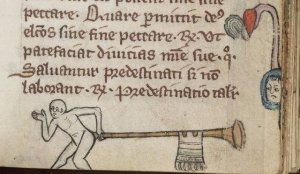 peccare. Quare permittit deꝰ
elc̄os sine fine peccare. ℞. Ut
patefaciat divicias mīe sue. q̊
Salvantur predestinati si nō
laborant. ℞. Predestinatio tali